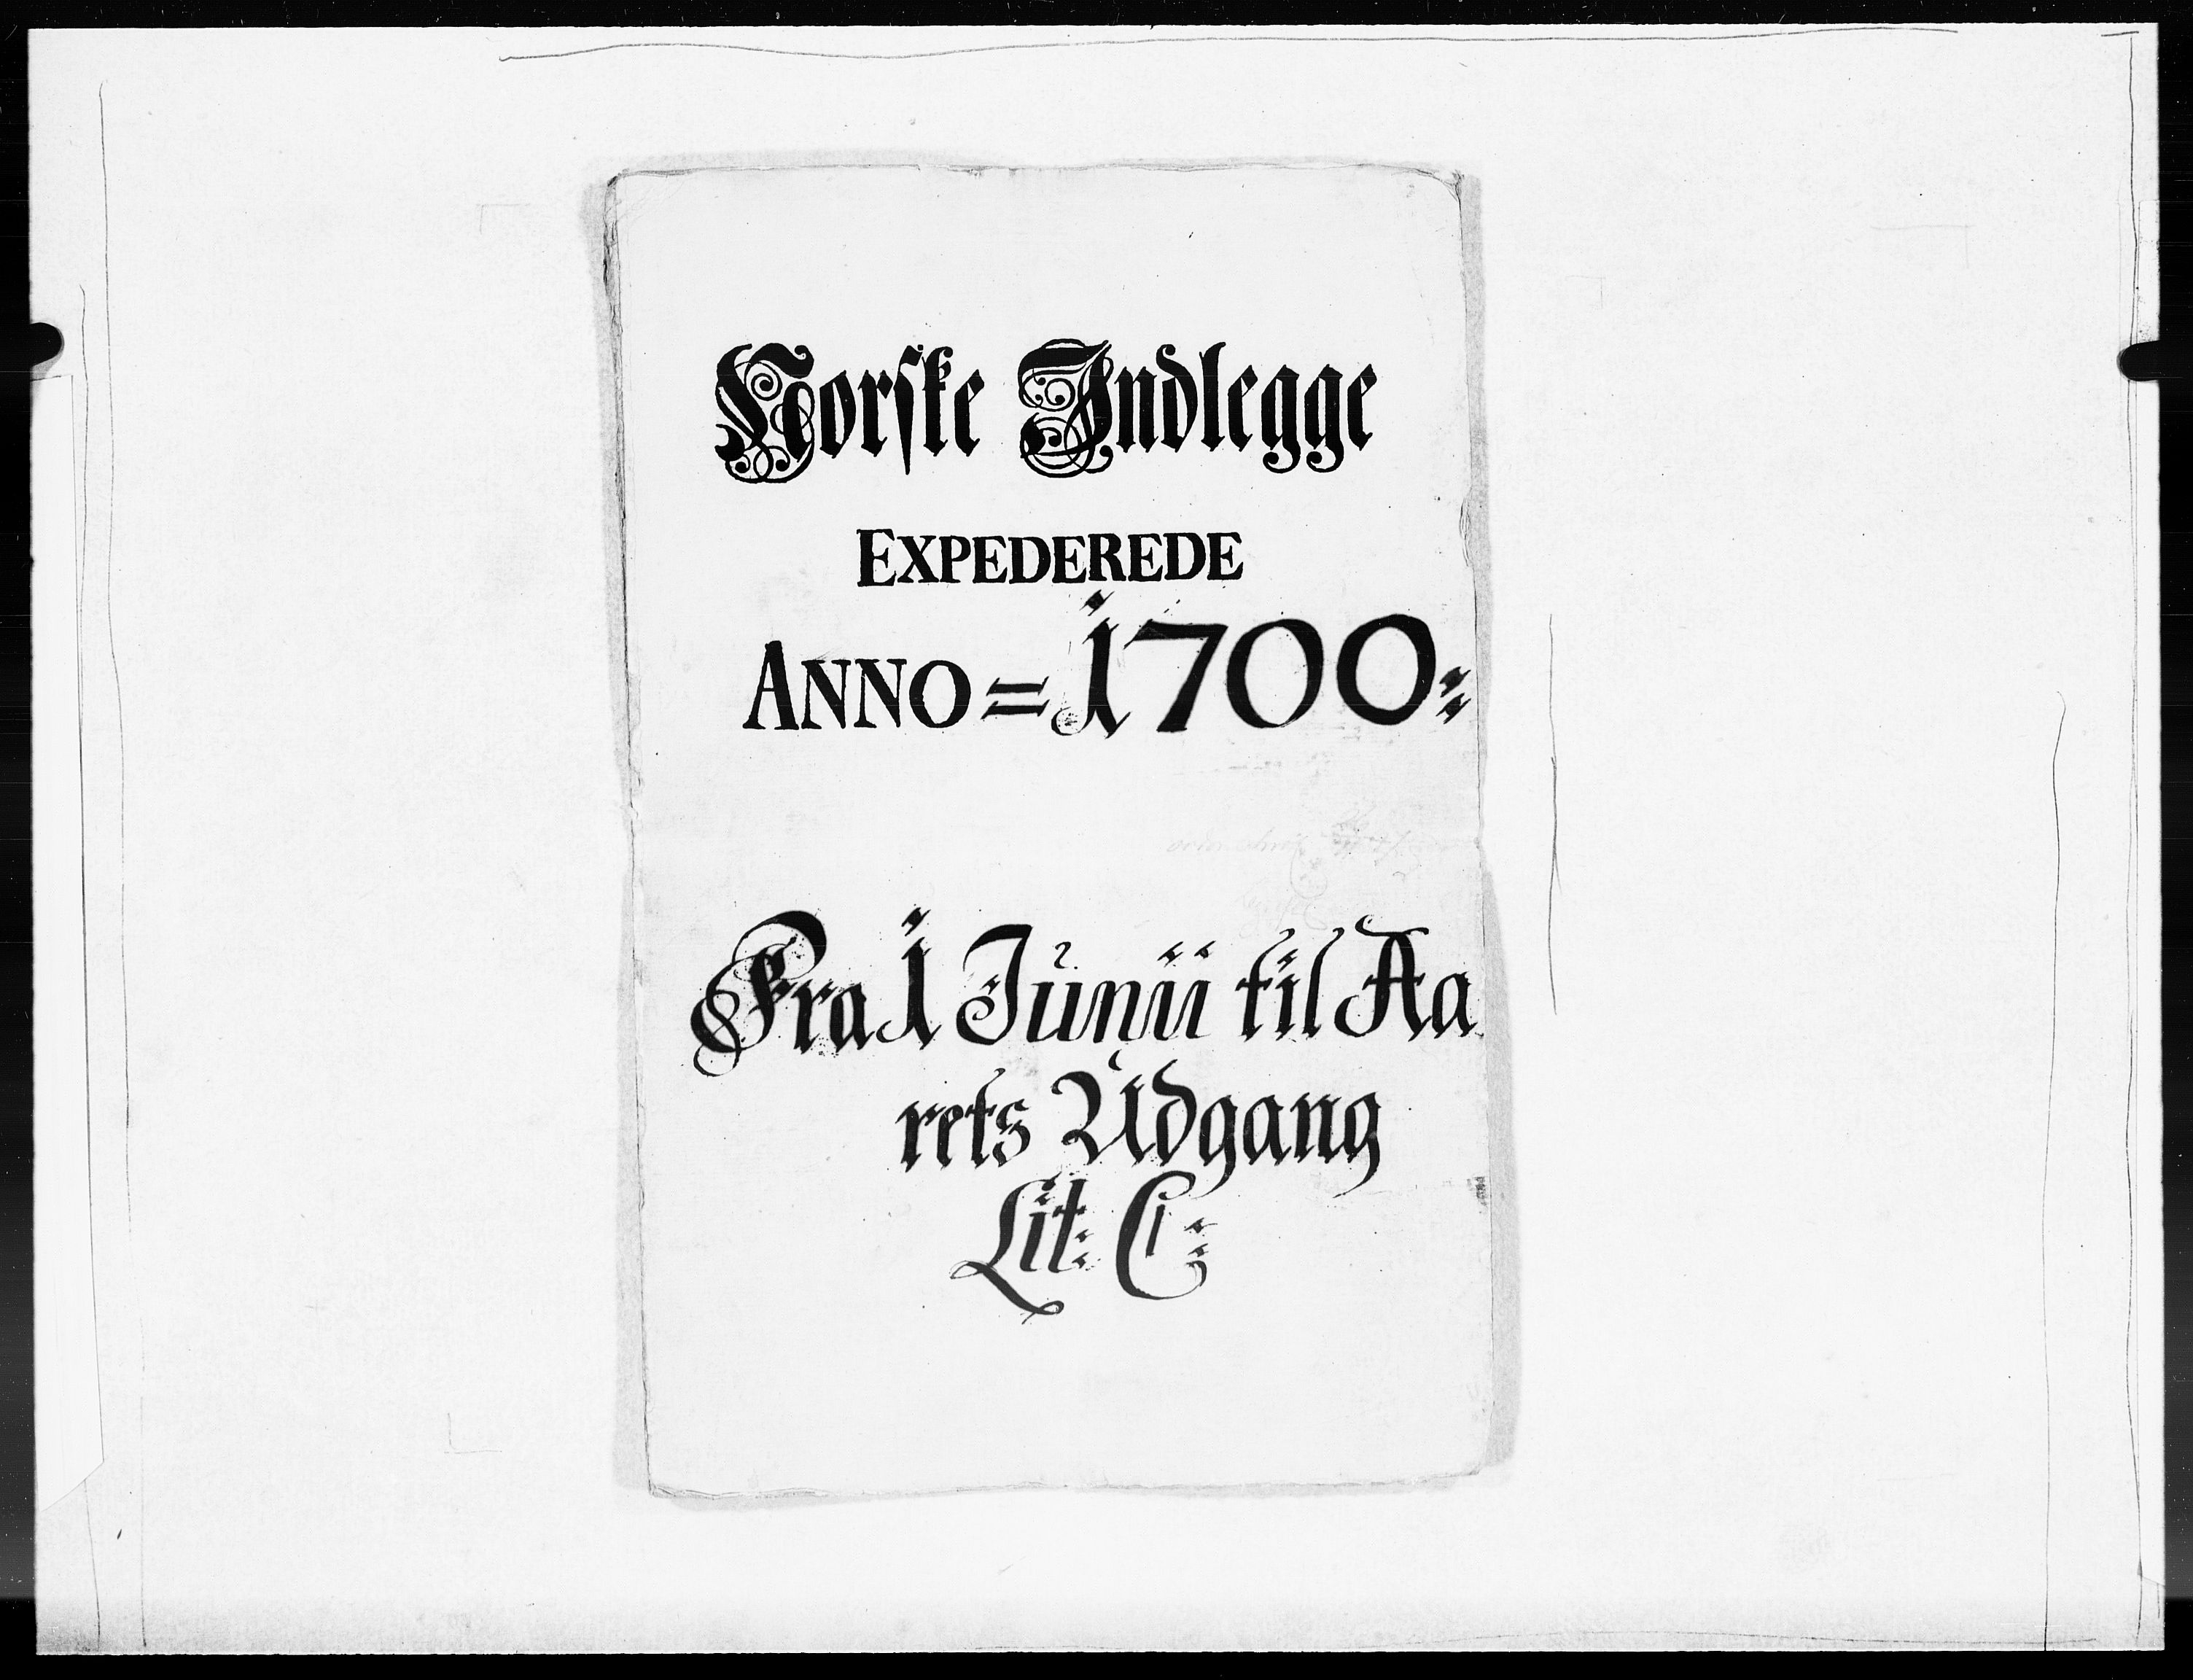 Norske Indlegge
EXPEDEREDE
ANNO = 1700:
Fra 1 Junii til Aa
rets Udgang
Lit: C: